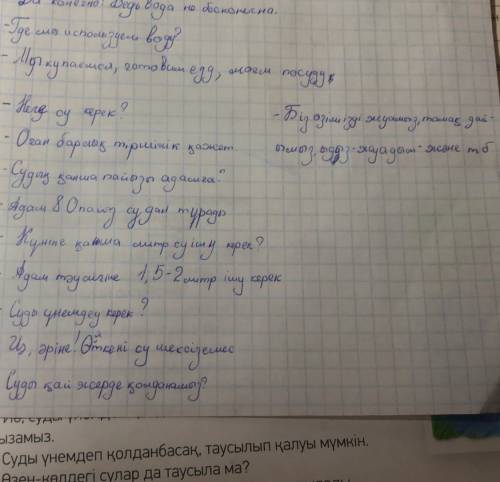 Да конечно! Ведь вода не бесконечна.
- Где мы используем воду?
- Мы купаемся, готовим еду, моем посуду.
- Неге су керек?
- Оған барлық тіршілік қажет.
- Судың қанша пайызы адамға?
- Адам 80 пайыз судан тұрады
- Күніне қанша литр су ішу керек?
- Адам тәулігіне 1,5-2 литр ішу керек
- Суды үнемдеу керек?
Иә, әрине! Өйткені су шексіз емес
Суды қай жерде қолданамыз?
- Біз өзімізді жуамыз, тамақ дай-
ымыз, ыдыс-жуадым-және тб
ызамыз.
Суды үнемдеп қолданбасақ, таусылып қалуы мүмкін.
Өзен-көлдегі сулар да таусыла ма?